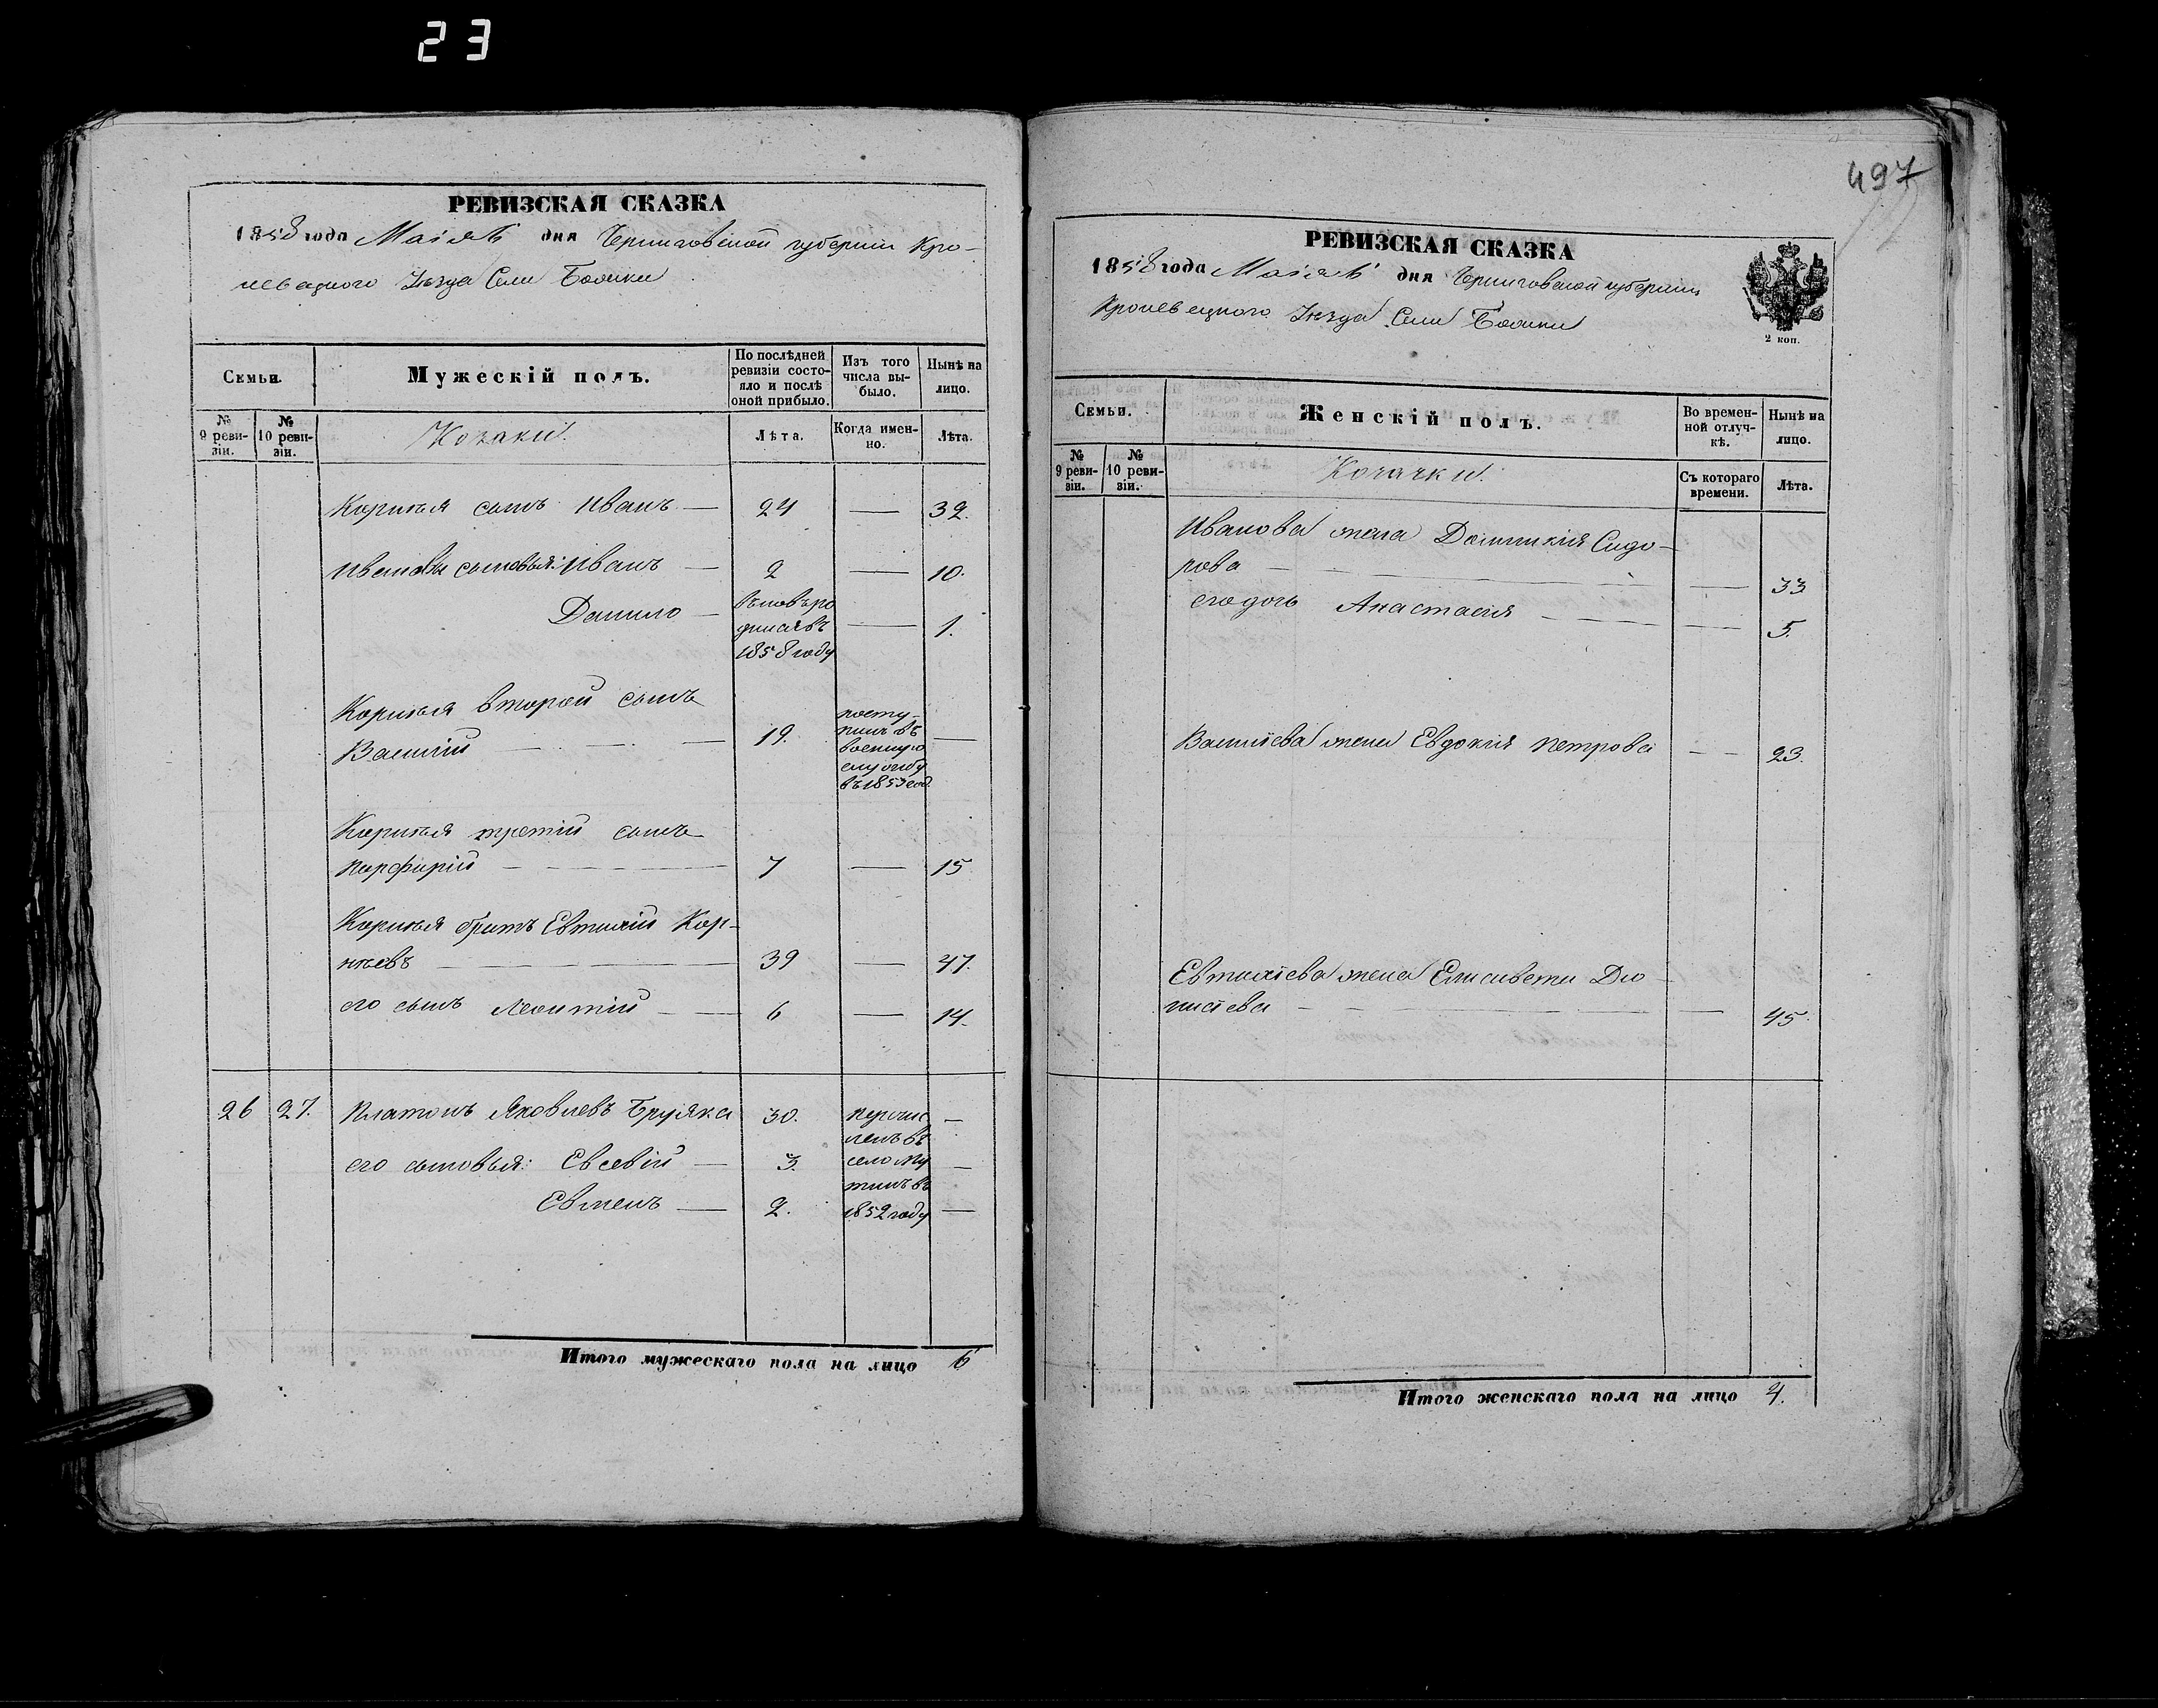 23
РЕВИЗСКАЯ СКАЗКА
1858 года Маія дня Черниговской губерніи Кро-
левецкого Уезда Села
Семьи.
Мужескій полъ.
По послѣдней ревизіи состояло и послѣ оной прибыло.
Изъ того числа выбыло.
Нынѣ на лицо.
№ 9 ревизіи.
№ 10 ревизіи.
Козаки.
Лѣта.
Когда именно.
Лѣта.
Корнѣя сынъ Иванъ — 24 — 32.
Ивановы сыновья: Иванъ — 2 — 10.
Данило — вновь ро
дился въ — 1.
1858 году
Корнѣя второй сынъ
Василій — 19. посту-
пилъ въ
военную
службу
въ 1853 год. —
Корнѣя третій сынъ
Порфирій — 7 — 15
Корнѣя братъ Евтихій Кор-
нѣевъ — 39 — 47.
его сынъ Леонтій — 6 — 14.
26 27. Платонъ Яковлевъ Бруяка 30. перечис
ленъ въ —
его сыновья: Евсевій — 3. село Му
тинъ въ —
Евменъ — 2. 1852 году —
Итого мужескаго пола на лицо 6
497
РЕВИЗСКАЯ СКАЗКА
1858 года Маія дня Черниговской губерніи
Кролевецкого Уезда Села
2 коп.
Семьи.
Женскій полъ.
Во временной отлучкѣ.
Нынѣ на лицо.
№ 9 ревизіи.
№ 10 ревизіи.
Козачки.
Съ котораго времени.
Лѣта.
Иванова жена Домникія Сидо-
рова — — 33
его дочь Анастасія — — 5.
Василіева жена Евдокія Петрова — 23.
Евтихіева жена Елисавета Діо-
нисіева — — 45.
Итого женскаго пола на лицо 4.